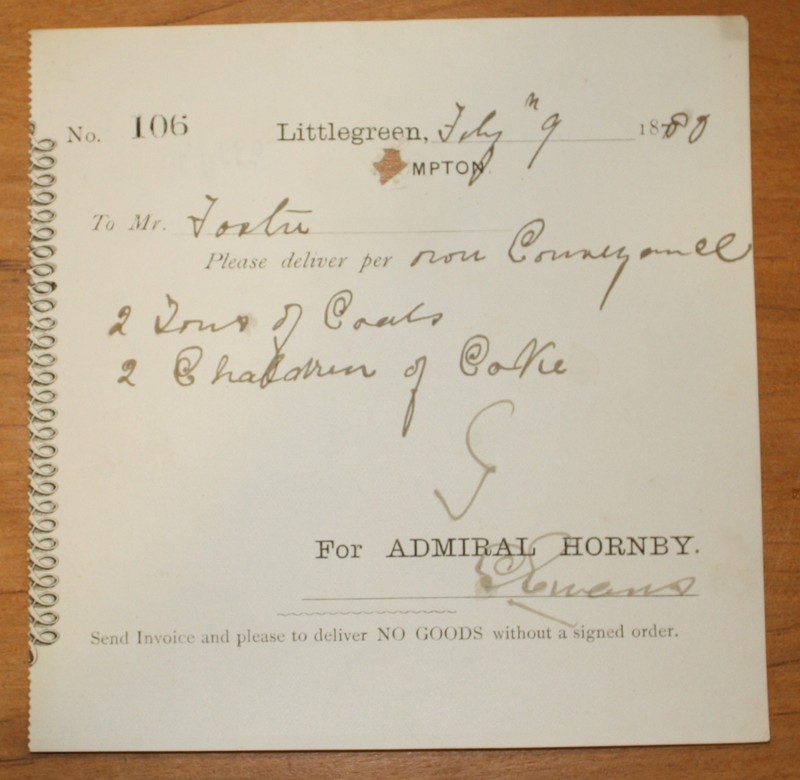 No. 106 Littlegreen, Feby 9 1880
MPTON.
To Mr. Foster
Please deliver per own Conveyance
2 Tons of Coals
2 Chaldren of Coke
For ADMIRAL HORNBY.
Evans
Send Invoice and please to deliver NO GOODS without a signed order.